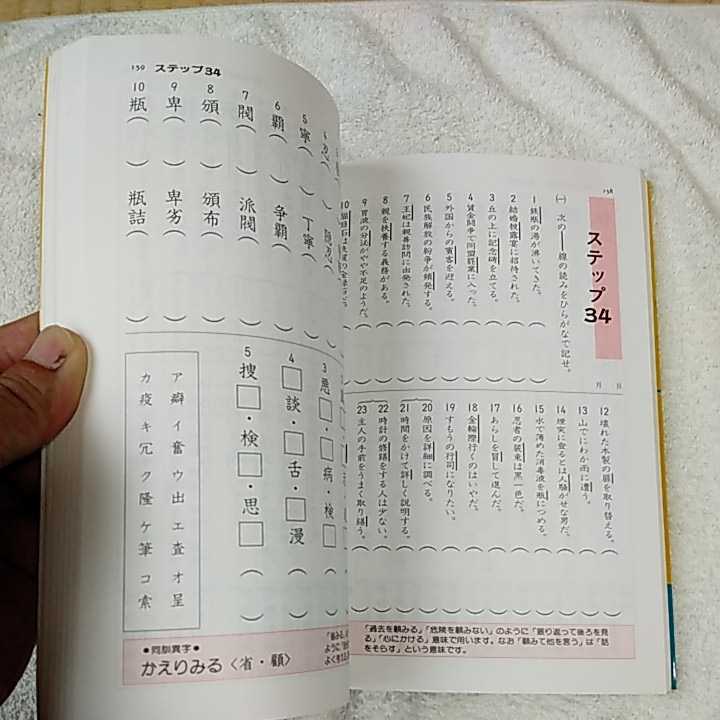 158
ステップ 34
月 日
(一) 次の――線の読みをひらがなで記せ。
1 鉄瓶の湯が沸いてきた。( )
2 結婚披露宴に招待された。( )
3 丘の上に記念碑を立てる。( )
4 賃金闘争で同盟罷業に入った。( )
5 外国からの賓客を迎える。( )
6 民族解放の紛争が頻発する。( )
7 王妃は親善訪問に出発された。( )
8 親を扶養する義務がある。( )
9 胃液の分泌がやや不足のようだ。( )
10
12 壊れた木製の扉を取り替える。( )
13 山でにわか雨に遭う。( )
14 煙突に登るとは人騒がせな男だ。( )
15 水で薄めた消毒液を瓶につめる。( )
16 忍者の装束は黒一色だ。( )
17 あらしを冒して進んだ。( )
18 金輪際行くのはいやだ。( )
19 すもうの行司になりたい。( )
20 原因を詳細に調べる。( )
21 時間をかけて詳しく説明する。( )
22 時計の修繕をする人は少ない。( )
23 主人の手前をうまく取り繕う。( )
「過去を顧みる」「危険を顧みない」のように「振り返って後ろを見
る」「心にかける」意味で用います。なお「顧みて他を言う」は「話
をそらす」という意味です。
159 ステップ34
5 寧( ) 丁寧( )
6 覇( ) 争覇( )
7 閥( ) 派閥( )
8 頒( ) 頒布( )
9 卑( ) 卑劣( )
10 瓶( ) 瓶詰( )
3 悪□・□病・検□( )
4 □談・□舌・□漫( )
5 捜□・検□・思□( )
ア 癖 イ 奮 ウ 出 エ 査 オ 呈
カ 疫 キ 冗 ク 隆 ケ 筆 コ 索
●同訓異字●
かえりみる〈省・顧〉